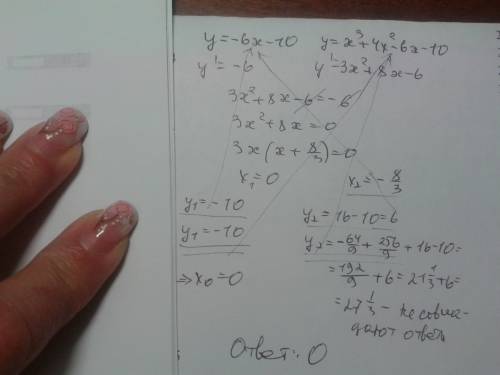 y = -6x - 10
y = x³ + 4x² - 6x - 10
y' = -6
y' = 3x² + 8x - 6
3x² + 8x - 6 = -6
3x² + 8x = 0
3x (x + 8/3) = 0
x₁ = 0
x₂ = - 8/3
y₁ = -10
y₁ = -10
⇒ x₀ = 0
y₂ = 16 - 10 = 6
y₂ = - 64/9 + 256/9 + 16 - 10 =
= 192/9 + 6 = 21 1/3 + 6 =
= 27 1/3 - не совпа-
дают ответы
Ответ: 0